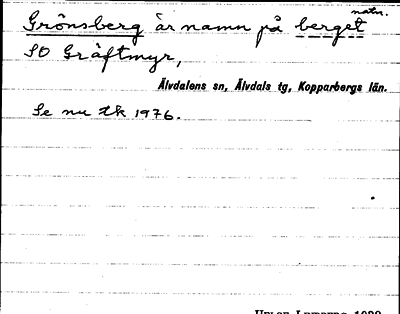 natn.
Grönsberg är namn på berget
SO Gråftmyr,
Älvdalens sn, Älvdals tg, Kopparbergs län.
Se nu tk 1976.